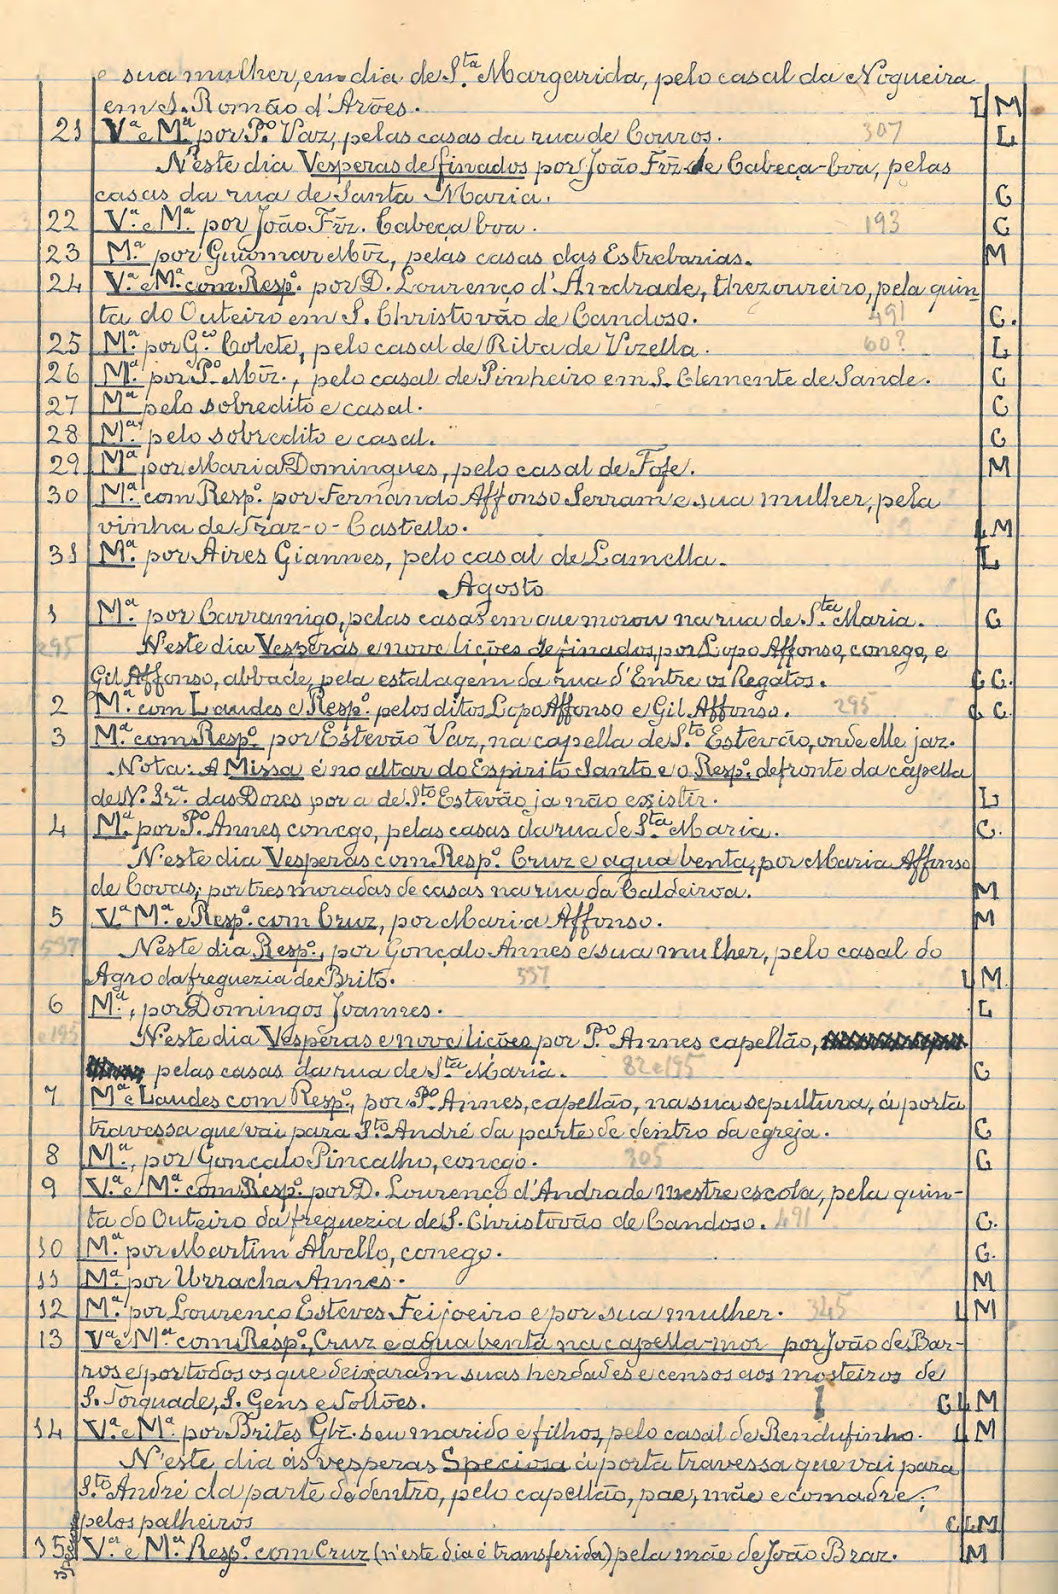 e sua mulher, em dia de S.ta Margarida, pelo casal da Nogueira
em S. Romão d'Arões. L M
21 V.a e M.a por P.o Vaz, pelas casas da rua de Couros. 307 L
N'este dia Vesperas de finados por João Frz de Cabeça-boa, pelas
casas da rua de Santa Maria. C
22 V.a e M.a por João Frz. Cabeça boa. 193 C
23 M.a por Guiomar Mrz, pelas casas das Estrebarias. M
24 V.a e M.a com Resp.o por D. Lourenço d'Andrade, thezoureiro, pela quin-
ta do Outeiro em S. Christovão de Candoso. 491 C.
25 M.a por G.co Cotete, pelo casal de Riba de Vizella. 60? L
26 M.a por P.o Mrz., pelo casal de Pinheiro em S. Clemente de Sande. C
27 M.a pelo sobredito e casal. C
28 M.a pelo sobredito e casal. C
29 M.a por Maria Domingues, pelo casal de Fofe. M
30 M.a com Resp.o por Fernando Affonso Serram e sua mulher, pela
vinha de Traz-o-Castello. L M
31 M.a por Aires Giannes, pelo casal de Lamella. L
Agosto
1 M.a por Carramigo, pelas casas em que morou na rua de S.ta Maria. C
295 N'este dia Vesperas e nove lições de finados, por Lopo Affonso, conego, e
Gil Affonso, abbade, pela estalagem da rua d'Entre os Regatos. C C.
2 M.a com Laudes e Resp.o pelos ditos Lopo Affonso e Gil Affonso. 295 C C.
3 M.a com Resp.o por Estevão Vaz, na capella de S.to Estevão, onde elle jaz.
Nota: A Missa é no altar do Espirito Santo e o Resp.o defronte da capella
de N. Sr.a das Dores por a de S.to Estevão ja não existir. L
4 M.a por P.o Annes, conego, pelas casas da rua de S.ta Maria. C.
N'este dia Vesperas com Resp.o Cruz e agua benta, por Maria Affonso
de Covas, por tres moradas de casas na rua da Caldeiroa. M
5 V.a M.a e Resp.o com Cruz, por Maria Affonso. M
537 Neste dia Resp.o, por Gonçalo Annes e sua mulher, pelo casal do
Agro da freguezia de Brito. 537 L M.
6 M.a, por Domingos Joannes. L
e 195 N'este dia Vespèras e nove lições por P.o Annes capellão,
pelas casas da rua de S.ta Maria. 82 e 195 C
7 M.a e Laudes com Resp.o, por P.o Annes, capellão, na sua sepultura, á porta
travessa que vai para S.to André da parte de dentro da egreja. C
8 M.a, por Gonçalo Pincalho, conego. 305 C
9 V.a e M.a com Resp.o por D. Lourenço d'Andrade mestre escola, pela quin-
ta do Outeiro da freguezia de S. Christovão de Candoso. 491 C.
10 M.a por Martim Alvello, conego. C.
11 M.a por Urracha Annes. M
12 M.a por Lourenço Esteves Feijoeiro e por sua mulher. 345 L M
13 V.a e M.a com Resp.o, Cruz e agua benta na capella-mor por João de Bar-
ros e por todos os que deixaram suas herdades e censos aos mosteiros de
S. Torquade, S. Gens e Tollões. C L M
14 V.a e M.a por Brites Glz. seu marido e filhos, pelo casal de Rendufinho. L M
N'este dia ás vesperas Speciosa á porta travessa que vai para
S.to André da parte de dentro, pelo capellão, pae, mãe e comadre;
pelos palheiros C L M
15 V.a e M.a Resp.o com Cruz (n'este dia é transferida) pela mãe de João Braz. M